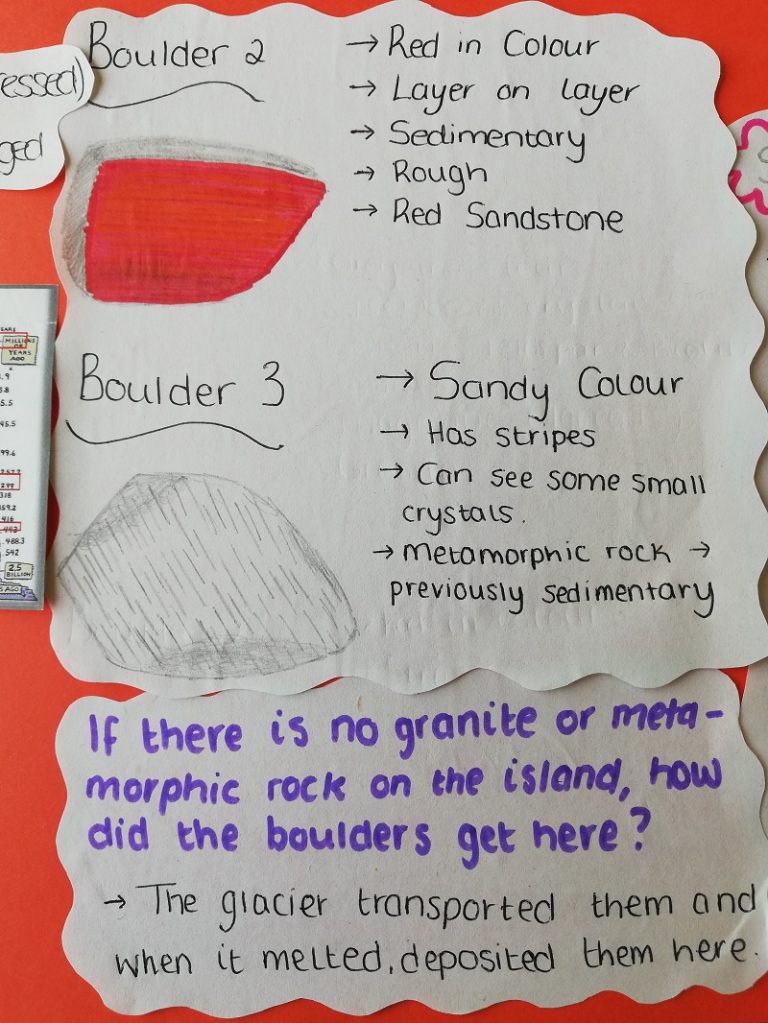 Boulder 2
→ Red in Colour
→ Layer on layer
→ Sedimentary
→ Rough
→ Red Sandstone
essed)
ged
MILLIONS
OF
YEARS
AGO
45.5
99.6
299
318
359.2
416
488.3
542
2.5
BILLION
Boulder 3
→ Sandy Colour
→ Has stripes
→ Can see some small
crystals.
→ metamorphic rock →
previously sedimentary
If there is no granite or meta-
morphic rock on the island, how
did the boulders get here?
→ The glacier transported them and
when it melted, deposited them here.